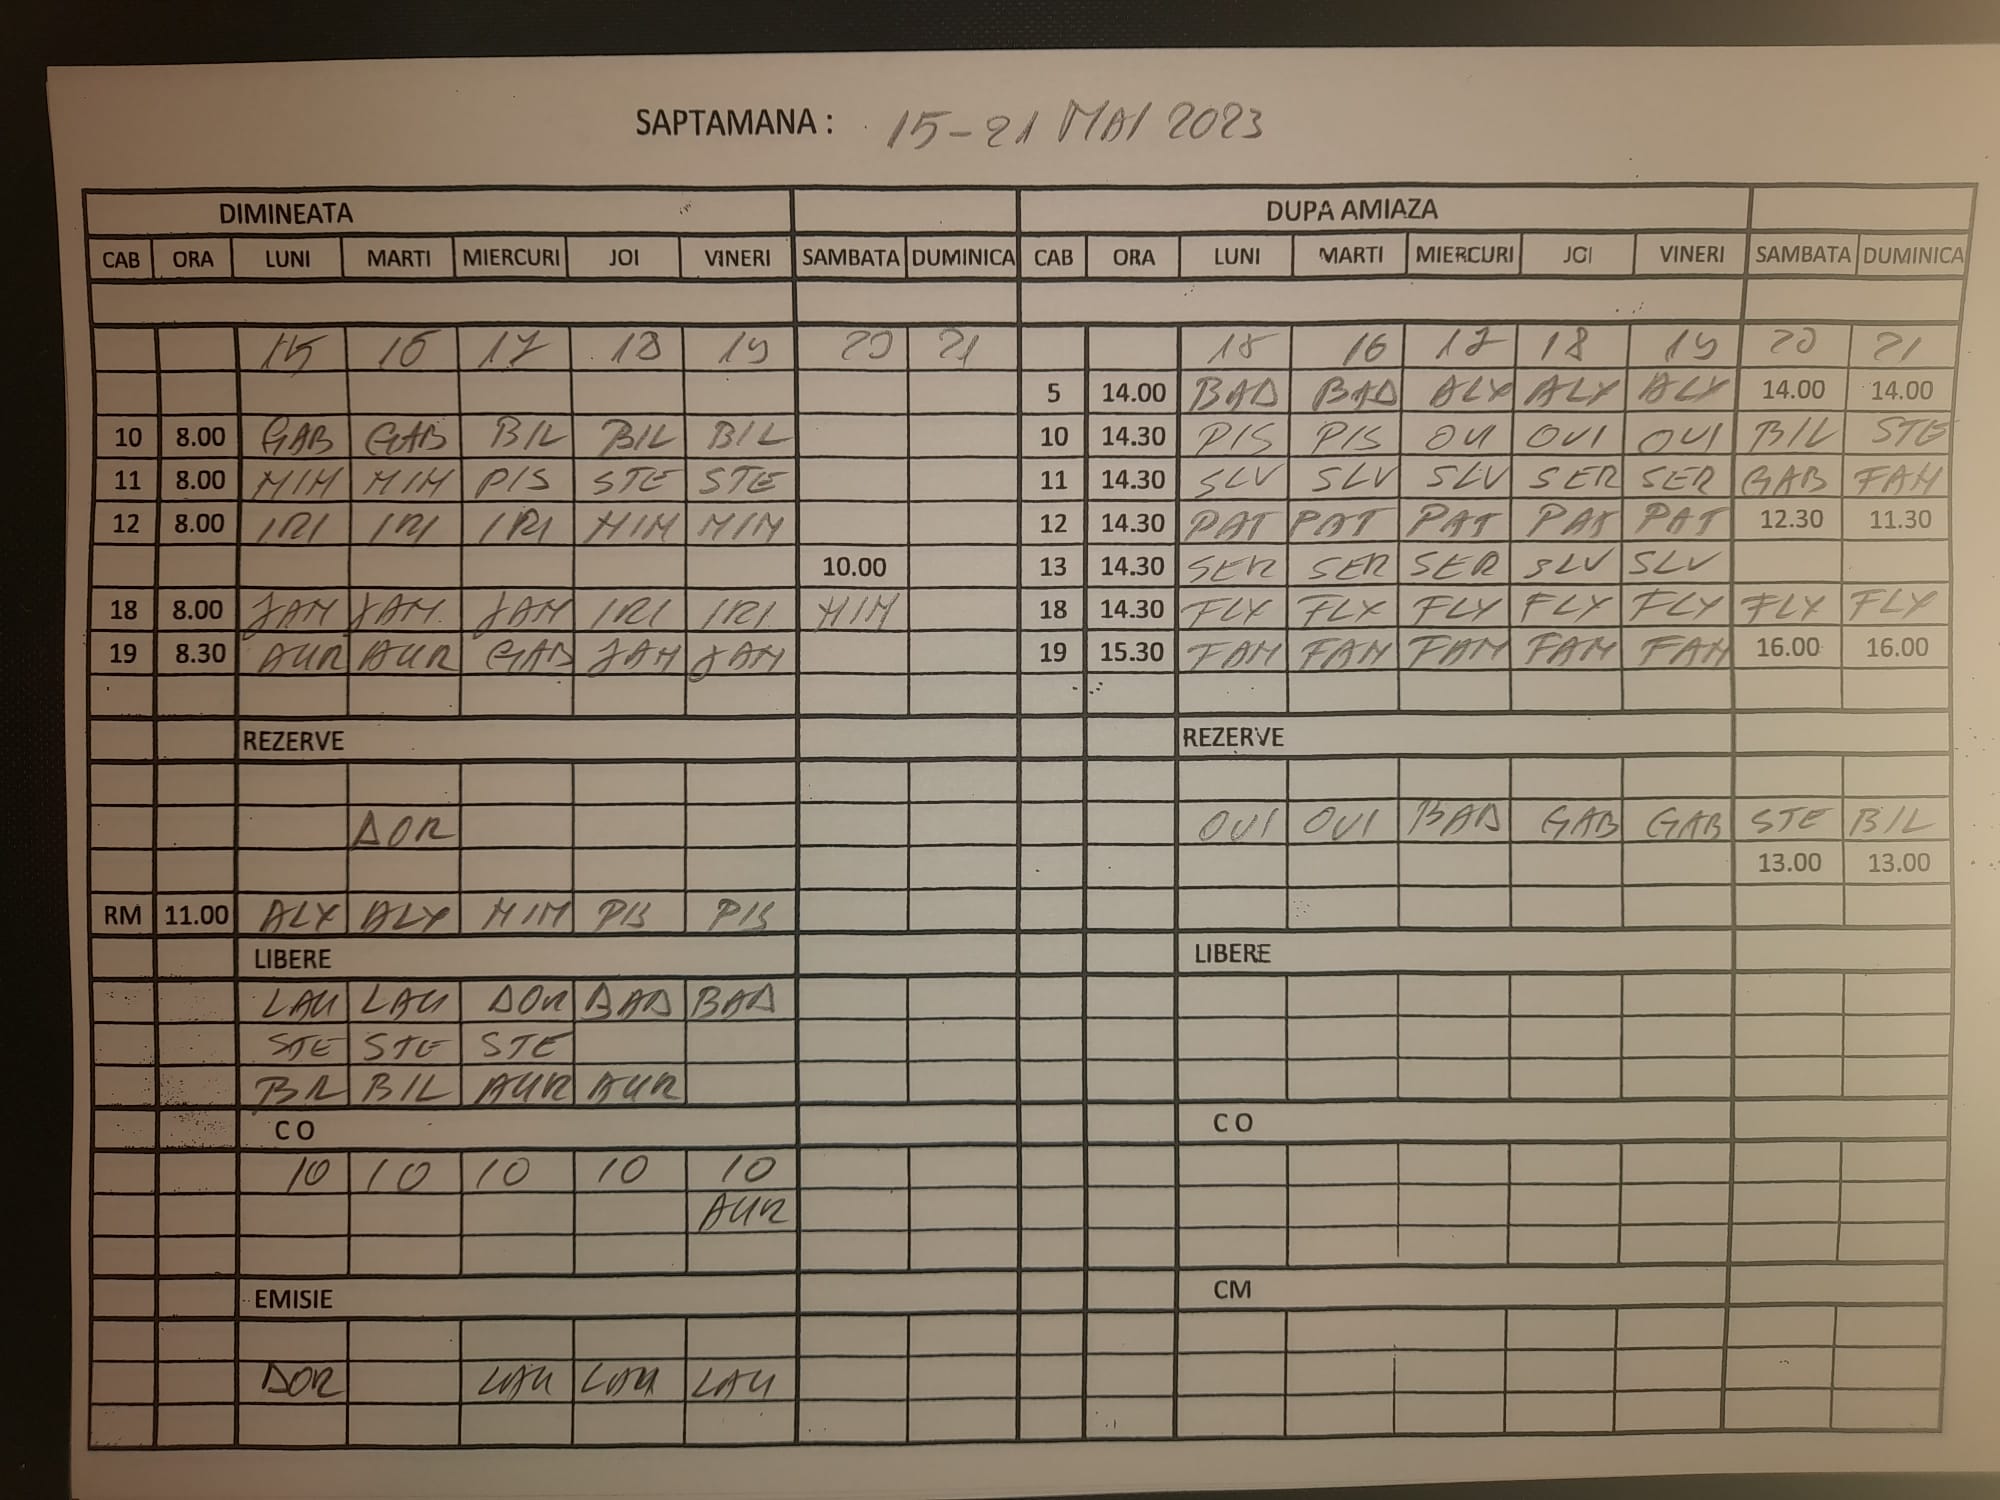 SAPTAMANA : 15-21 MAI 2023
DIMINEATA DUPA AMIAZA
CAB ORA LUNI MARTI MIERCURI JOI VINERI SAMBATA DUMINICA CAB ORA LUNI MARTI MIERCURI JOI VINERI SAMBATA DUMINICA
15 16 17 18 19 20 21 15 16 17 18 19 20 21
5 14.00 BAD BAD ALX ALX ALX 14.00 14.00
10 8.00 GAB GAB BIL BIL BIL 10 14.30 PIS PIS OVI OVI OVI BIL STE
11 8.00 MIM MIM PIS STE STE 11 14.30 SLV SLV SLV SER SER GAB FAM
12 8.00 IRI IRI IRI MIM MIM 12 14.30 PAT PAT PAT PAT PAT 12.30 11.30
10.00 13 14.30 SER SER SER SLV SLV
18 8.00 JAM JAM JAM IRI IRI MIM 18 14.30 FLX FLX FLX FLX FLX FLX FLX
19 8.30 AUR AUR GAB JAM JAM 19 15.30 FAM FAM FAM FAM FAM 16.00 16.00
REZERVE REZERVE
DOR OVI OVI BAD GAB GAB STE BIL
13.00 13.00
RM 11.00 ALX ALX MIM PIS PIS
LIBERE LIBERE
LAU LAU DOR BAD BAD
STE STE STE
BIL BIL AUR AUR
C O C O
10 10 10 10 10
AUR
EMISIE CM
DOR LAU LAU LAU